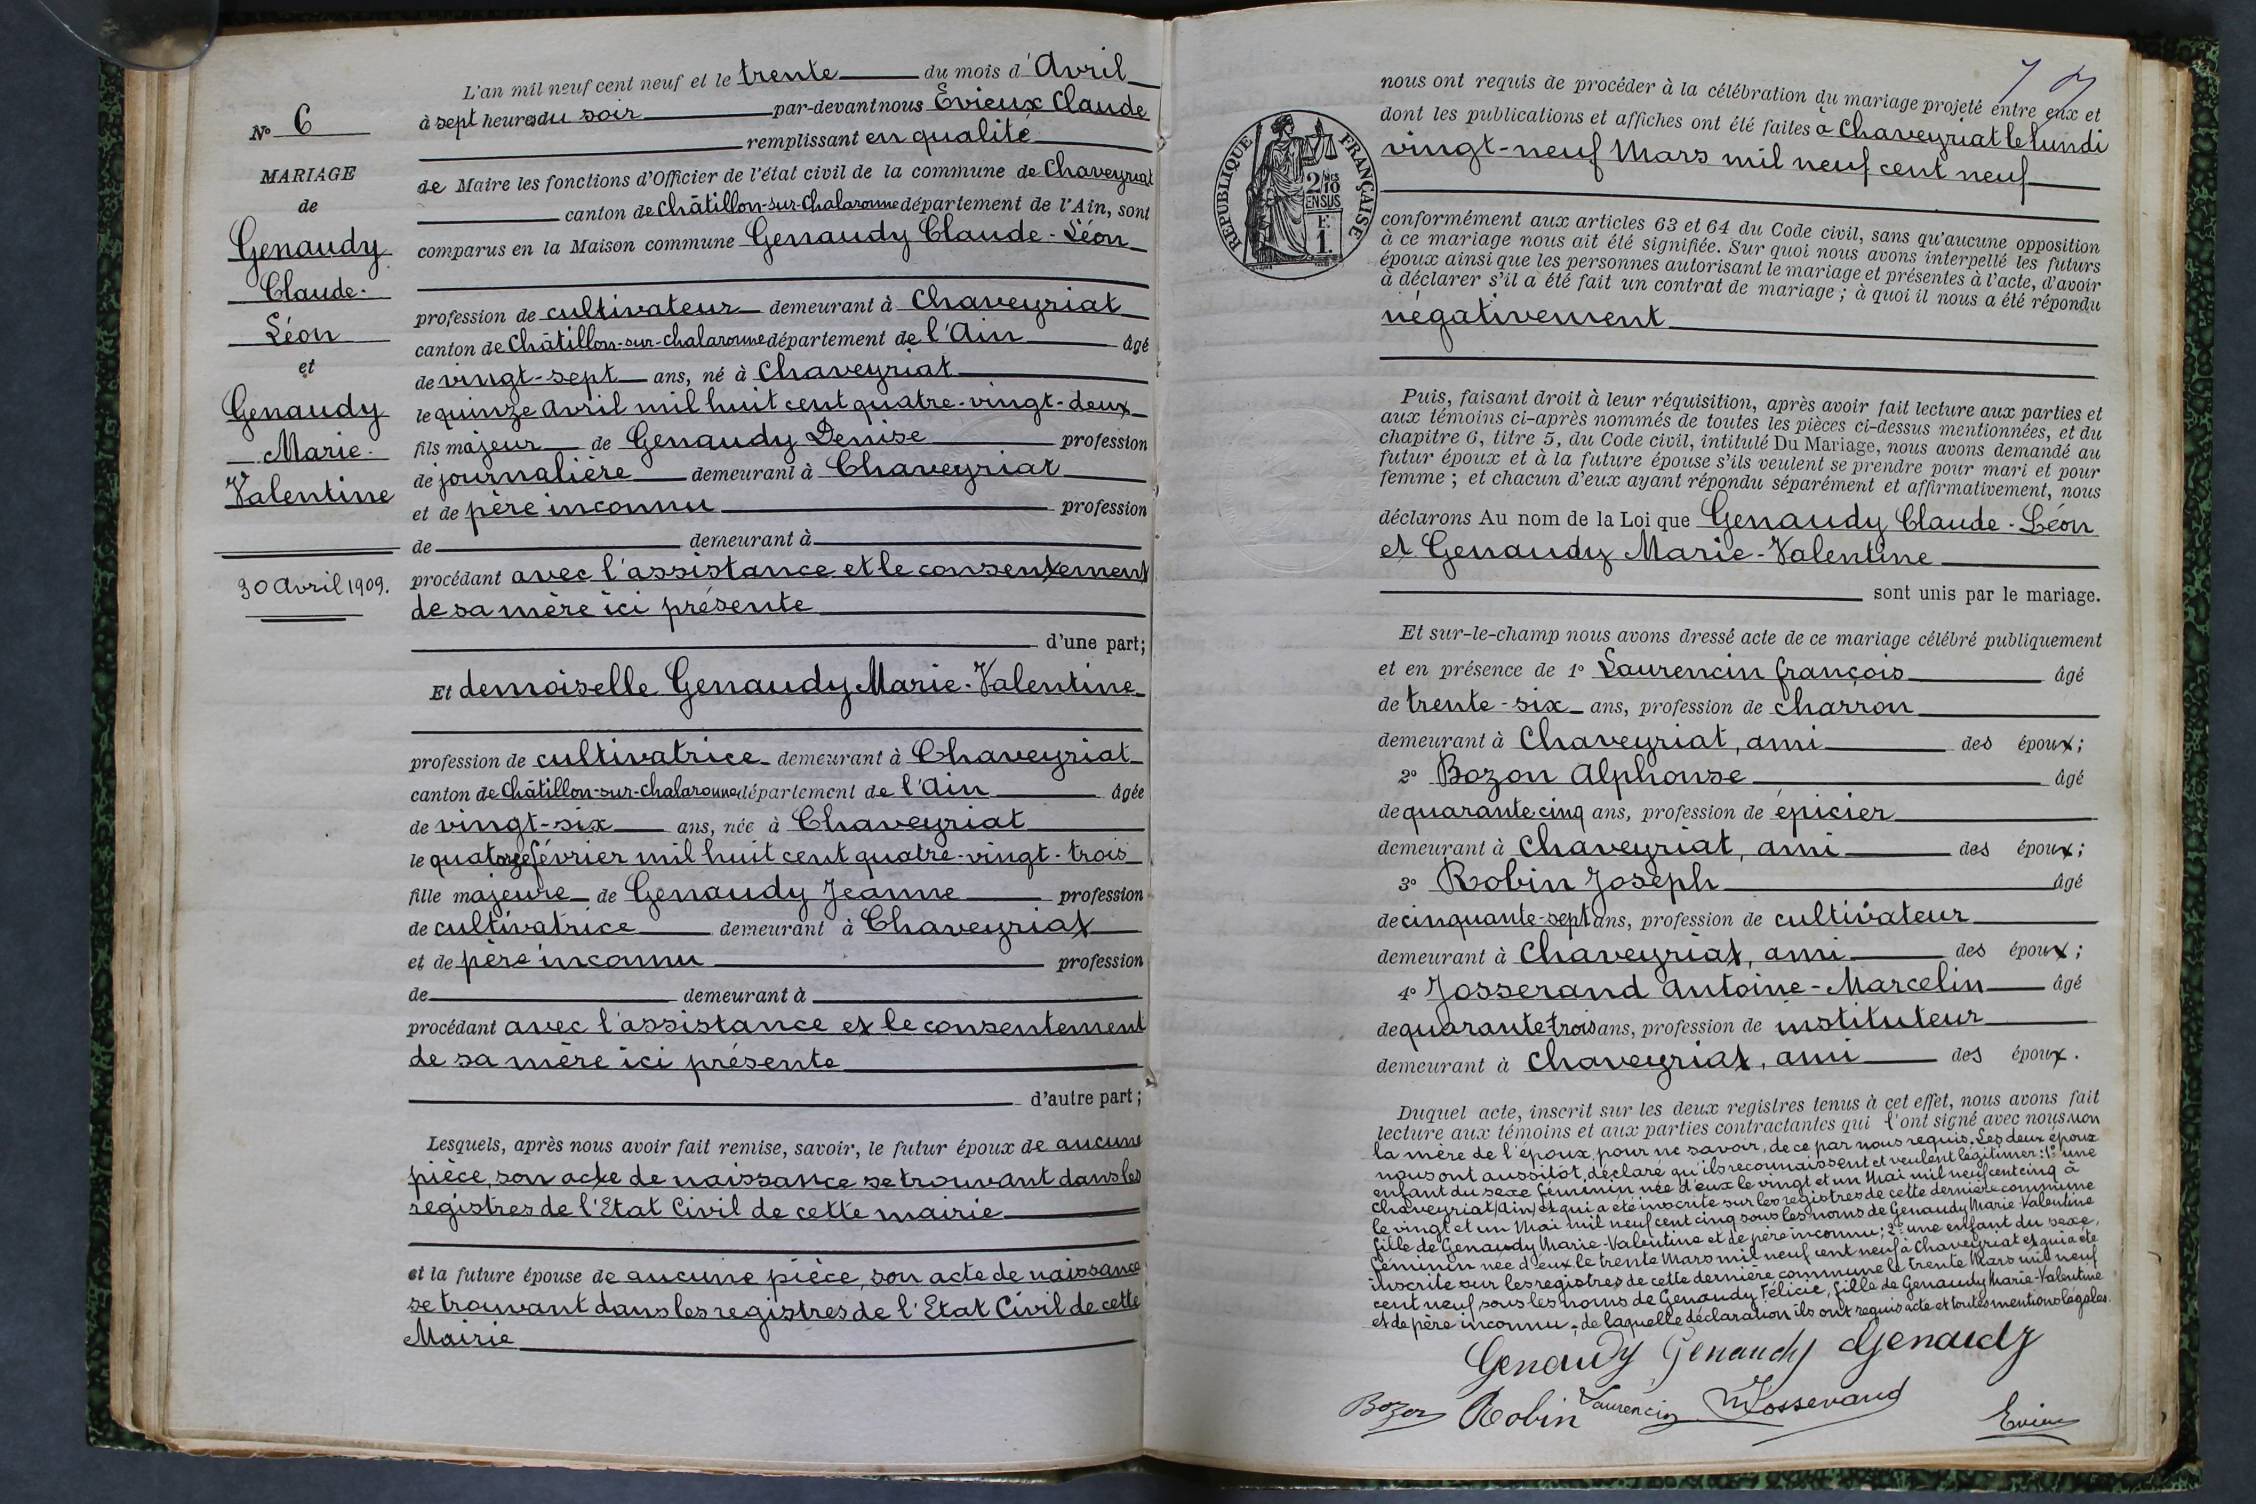 L'an mil neuf cent neuf et le trente du mois d'Avril
à sept heures du soir par-devant nous Evieux Claude
remplissant en qualité
de Maire les fonctions d'Officier de l'état civil de la commune de Chaveyriat
canton de Châtillon-sur-Chalaronne département de l'Ain, sont
comparus en la Maison commune Genaudy Claude-Léon
profession de cultivateur demeurant à Chaveyriat
canton de Châtillon-sur-chalaronne département de l'Ain âgé
de vingt-sept ans, né à Chaveyriat
le quinze avril mil huit cent quatre-vingt-deux
fils majeur de Genaudy Denise profession
de journalière demeurant à Chaveyriat
et de père inconnu profession
de demeurant à
procédant avec l'assistance et le consentement
de sa mère ici présente
d'une part;
Et demoiselle Genaudy Marie-Valentine
profession de cultivatrice demeurant à Chaveyriat
canton de Châtillon-sur-chalaronne département de l'Ain âgée
de vingt-six ans, née à Chaveyriat
le quatorze février mil huit cent quatre-vingt-trois
fille majeure de Genaudy Jeanne profession
de cultivatrice demeurant à Chaveyriat
et de père inconnu profession
de demeurant à
procédant avec l'assistance et le consentement
de sa mère ici présente
d'autre part;
Lesquels, après nous avoir fait remise, savoir, le futur époux de aucune
pièce, son acte de naissance se trouvant dans les
registres de l'Etat Civil de cette mairie
et la future épouse de aucune pièce, son acte de naissance
se trouvant dans les registres de l'Etat Civil de cette
Mairie
N° 6
MARIAGE
de
Genaudy
Claude-
Léon
et
Genaudy
Marie-
Valentine
30 Avril 1909.
7
nous ont requis de procéder à la célébration du mariage projeté entre eux et
dont les publications et affiches ont été faites à Chaveyriat le lundi
vingt-neuf Mars mil neuf cent neuf
RÉPUBLIQUE FRANÇAISE
2/10
EN SUS
F.
1.
conformément aux articles 63 et 64 du Code civil, sans qu'aucune opposition
à ce mariage nous ait été signifiée. Sur quoi nous avons interpellé les futurs
époux ainsi que les personnes autorisant le mariage et présentes à l'acte, d'avoir
à déclarer s'il a été fait un contrat de mariage; à quoi il nous a été répondu
négativement
Puis, faisant droit à leur réquisition, après avoir fait lecture aux parties et
aux témoins ci-après nommés de toutes les pièces ci-dessus mentionnées, et du
chapitre 6, titre 5, du Code civil, intitulé Du Mariage, nous avons demandé au
futur époux et à la future épouse s'ils veulent se prendre pour mari et pour
femme; et chacun d'eux ayant répondu séparément et affirmativement, nous
déclarons Au nom de la Loi que Genaudy Claude-Léon
et Genaudy Marie-Valentine
sont unis par le mariage.
Et sur-le-champ nous avons dressé acte de ce mariage célébré publiquement
et en présence de 1° Laurencin françois âgé
de trente-six ans, profession de charron
demeurant à Chaveyriat, ami des époux;
2° Bozon Alphonse âgé
de quarante cinq ans, profession de épicier
demeurant à Chaveyriat, ami des époux;
3° Robin Joseph âgé
de cinquante-sept ans, profession de cultivateur
demeurant à Chaveyriat, ami des époux;
4° Josserand Antoine-Marcelin âgé
de quarante trois ans, profession de instituteur
demeurant à Chaveyriat, ami des époux.
Duquel acte, inscrit sur les deux registres tenus à cet effet, nous avons fait
lecture aux témoins et aux parties contractantes qui l'ont signé avec nous non
la mère de l'époux, pour ne savoir, de ce par nous requis. Les deux époux
nous ont aussitôt déclaré qu'ils reconnaissent et veulent légitimer: 1° une
enfant du sexe féminin née d'eux le vingt et un Mai mil neuf cent cinq à
Chaveyriat (Ain) et qui a été inscrite sur les registres de cette dernière commune
le vingt et un Mai mil neuf cent cinq sous les noms de Genaudy Marie-Valentine
fille de Genaudy Marie-Valentine et de père inconnu; 2° une enfant du sexe
féminin née d'eux le trente Mars mil neuf cent neuf à Chaveyriat et qui a été
inscrite sur les registres de cette dernière commune le trente Mars mil neuf
cent neuf, sous les noms de Genaudy Félicie, fille de Genaudy Marie-Valentine
et de père inconnu; de laquelle déclaration ils ont requis acte et toutes mentions légales.
Genaudy Genaudy Genaudy
Bozon Robin Laurencin Josserand
Evieux